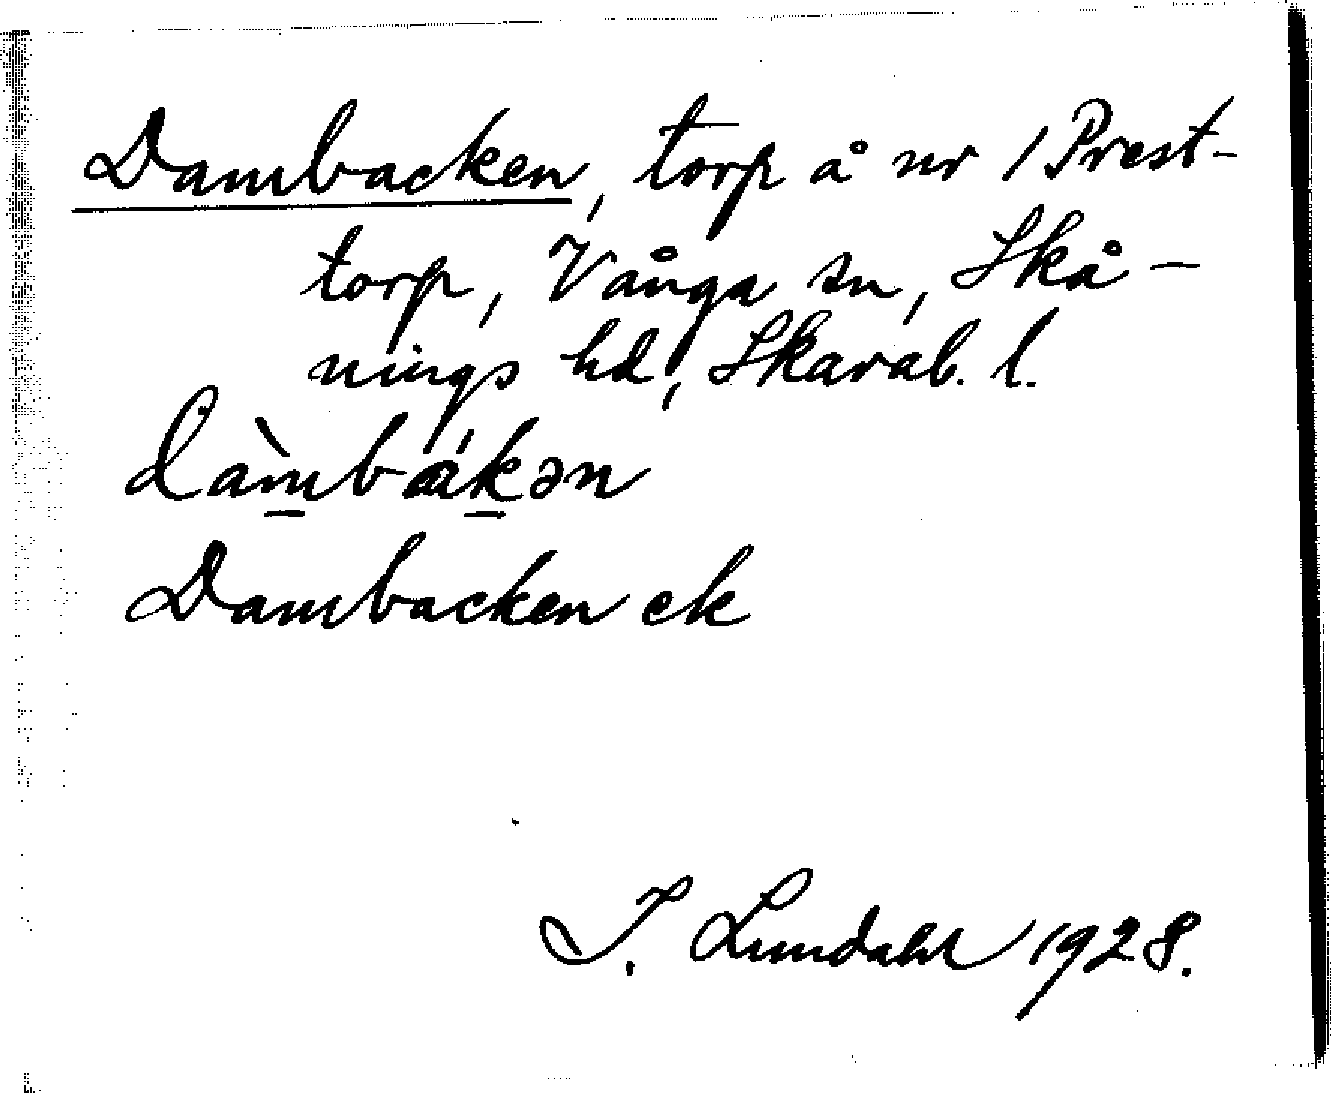 Dambacken, torp å nr 1 Prest-
torp, Vånga sn, Skå-
nings hd, Skarab. l.
dàmbákən
Dambacken ek
I. Lundahl 1928.